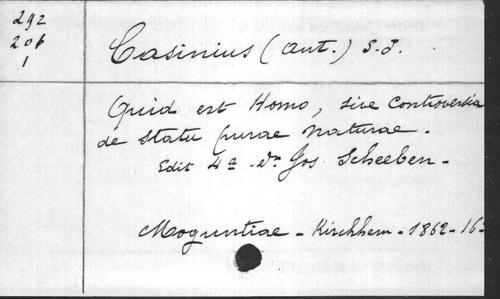 292
206
1
Casinius (Ant.) S.J.
Quid est Homo, sive Controversia
de statu purae naturae.
Edit 4ª - Dr Jos Scheeben -
Moguntiae - Kirchhem - 1862 - 16º